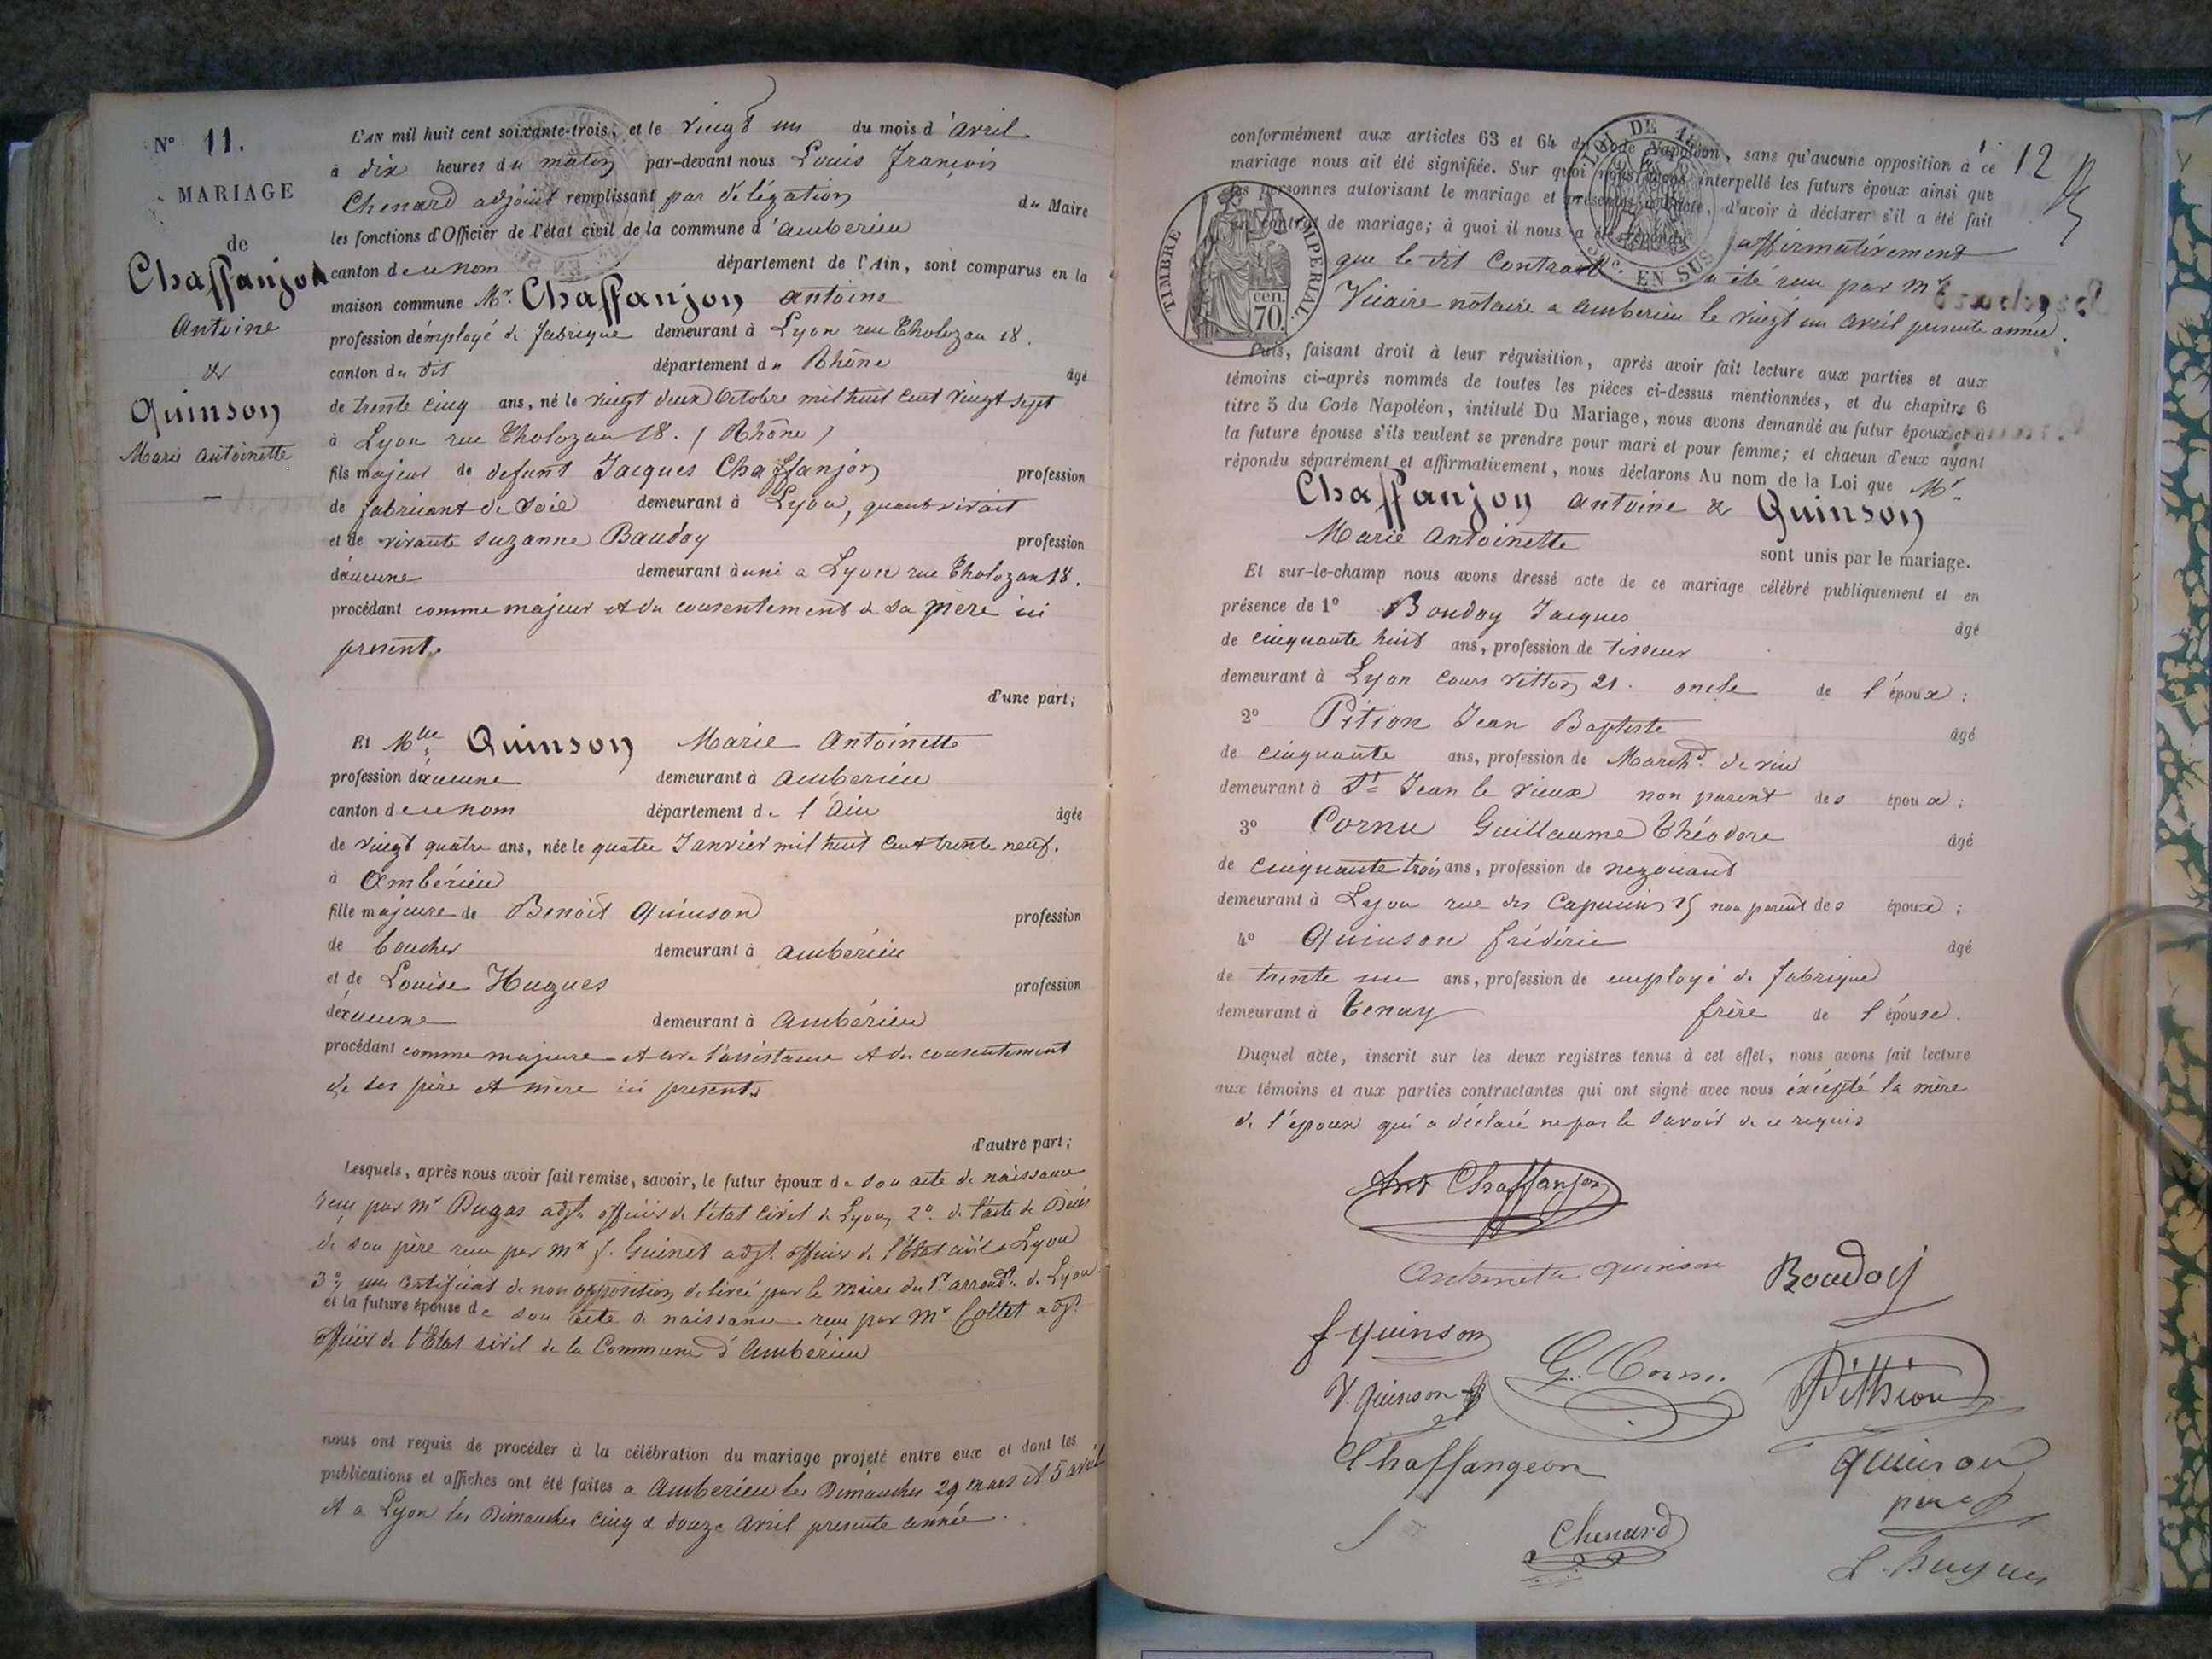 N° 11.
MARIAGE
de
Chaffanjon
Antoine
&
Quinson
Marie Antoinette
L'AN mil huit cent soixante-trois, et le vingt un du mois d'avril
à dix heures du matin par-devant nous Louis François
Chenard adjoint remplissant par délégation du Maire
les fonctions d'Officier de l'état civil de la commune d'ambérieu
canton de ce nom département de l'Ain, sont comparus en la
maison commune Mr. Chaffanjon antoine
profession d'employé de fabrique demeurant à Lyon rue Tholozan 18.
canton du dit département du Rhône âgé
de trente cinq ans, né le vingt deux Octobre mil huit cent vingt sept
à Lyon rue Tholozan 18. (Rhône)
fils majeur de defunt Jacques Chaffanjon profession
de fabricant de soie demeurant à Lyon, quand vivait
et de vivante Suzanne Baudoy profession
d'aucune demeurant à uni a Lyon rue Tholozan 18.
procédant comme majeur et du consentement de sa mère ici
present.
d'une part;
Et Mlle Quinson Marie Antoinette
profession d'aucune demeurant à ambérieu
canton de ce nom département de l'Ain âgée
de vingt quatre ans, née le quatre Janvier mil huit cent trente neuf.
à Ambérieu
fille majeure de Benoît Quinson profession
de boucher demeurant à ambérieu
et de Louise Hugues profession
d'aucune demeurant à ambérieu
procédant comme majeure et avec l'assistance et du consentement
de ses père et mère ici presents
d'autre part;
Lesquels, après nous avoir fait remise, savoir, le futur époux de son acte de naissance
reçu par mr Dugas adjt. officier de l'état civil de Lyon, 2° de l'acte de Décès
de son père reçu par mr J. Guinet adjt. officier de l'état civil a Lyon
3° un certificat de non opposition delivré par le maire du 1r. arrondt. de Lyon.
et la future épouse de son acte de naissance reçu par Mr Collet adjt.
officier de l'État civil de la Commune d'Ambérieu
nous ont requis de procéder à la célébration du mariage projeté entre eux et dont les
publications et affiches ont été faites a Ambérieu les Dimanches 29 mars et 5 avril
et a Lyon les Dimanches cinq & douze avril presente année.
12
conformément aux articles 63 et 64 du Code Napoléon, sans qu'aucune opposition à ce
mariage nous ait été signifiée. Sur quoi nous avons interpellé les futurs époux ainsi que
les personnes autorisant le mariage et présentes à l'acte, d'avoir à déclarer s'il a été fait
un contrat de mariage; à quoi il nous a été répondu affirmativement
que le dit Contrat a été reçu par Me
Vicaire notaire a ambérieu le vingt un avril presente année.
LOI DE
EN SUS
TIMBRE IMPERIAL
cen.
70.
Puis, faisant droit à leur réquisition, après avoir fait lecture aux parties et aux
témoins ci-après nommés de toutes les pièces ci-dessus mentionnées, et du chapitre 6
titre 5 du Code Napoléon, intitulé Du Mariage, nous avons demandé au futur époux et à
la future épouse s'ils veulent se prendre pour mari et pour femme; et chacun d'eux ayant
répondu séparément et affirmativement, nous déclarons Au nom de la Loi que Mr.
Chaffanjon antoine & Quinson
Marie Antoinette sont unis par le mariage.
Et sur-le-champ nous avons dressé acte de ce mariage célébré publiquement et en
présence de 1° Boudoy Jacques âgé
de cinquante huit ans, profession de tisseur
demeurant à Lyon cours Vitton 21. oncle de l'époux;
2° Pition Jean Baptiste âgé
de cinquante ans, profession de Marchd. de vin
demeurant à St Jean le vieux non parent des époux;
3° Cornu Guillaume Théodore âgé
de cinquante trois ans, profession de negociant
demeurant à Lyon rue des Capucins 25 non parent des époux;
4° Quinson frédéric âgé
de trente un ans, profession de employé de fabrique
demeurant à Tenay frère de l'épouse.
Duquel acte, inscrit sur les deux registres tenus à cet effet, nous avons fait lecture
aux témoins et aux parties contractantes qui ont signé avec nous excepté la mère
de l'époux qui a déclaré ne pas le savoir de ce requis
Ant Chaffanjon
Antoinette quinson Boudoy
f quinson
V. quinson G. Cornu. Pithion
Chaffangeon quinson
pere
Chenard L. hugues